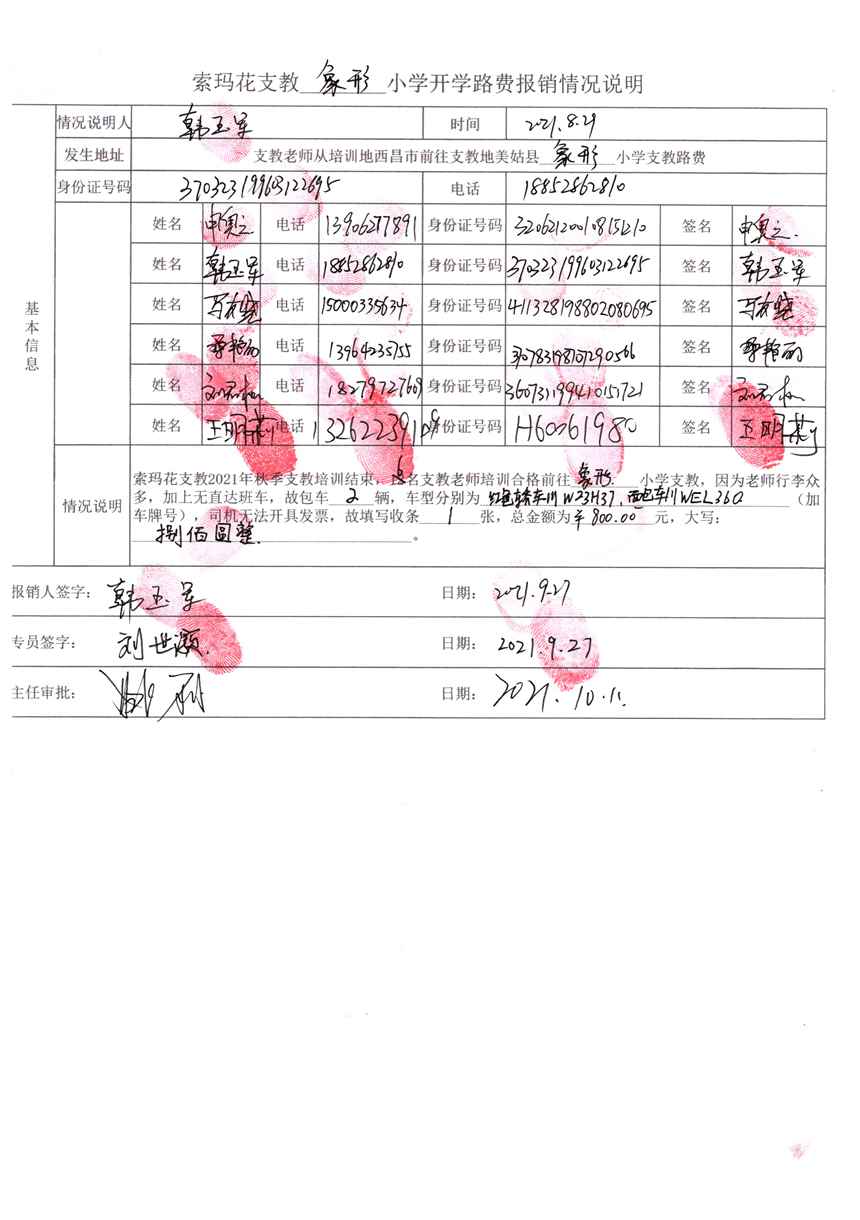 索玛花支教 象形 小学开学路费报销情况说明
情况说明人 韩玉军 时间 2021.8.29
发生地址 支教老师从培训地西昌市前往支教地美姑县 象形 小学支教路费
身份证号码 370323199603122695 电话 18852862810
基本信息
姓名 申奥之 电话 13906277891 身份证号码 320621200108151210 签名 申奥之.
姓名 韩玉军 电话 18852862810 身份证号码 370323199603122695 签名 韩玉军
姓名 电话 15000335634 身份证号码 411328198802080695 签名
姓名 电话 13964235755 身份证号码 370783198707290566 签名
姓名 刘君梅 电话 18279972769 身份证号码 360731199410151721 签名 刘君梅
姓名 王明莉 电话 身份证号码 H60361980 签名 王明莉
情况说明
索玛花支教2021年秋季支教培训结束, 6名支教老师培训合格前往 象形 小学支教，因为老师行李众
多，加上无直达班车，故包车 2 辆，车型分别为 红色轿车川W23H37，面包车川WEL360 （加
车牌号），司机无法开具发票，故填写收条 1 张，总金额为￥800.00 元，大写：
捌佰圆整. 。
报销人签字： 韩玉军 日期： 2021.9.27
专员签字： 刘世源. 日期： 2021.9.27
主任审批： 日期： 2021.10.11.